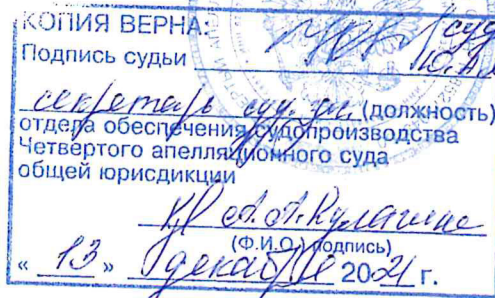 КОПИЯ ВЕРНА:
Подпись судьи
секретарь суд. (должность)
отдела обеспечения судопроизводства
Четвертого апелляционного суда
общей юрисдикции
А.А. Кулагина
(Ф.И.О.) подпись)
« 13 » декабря 2021 г.